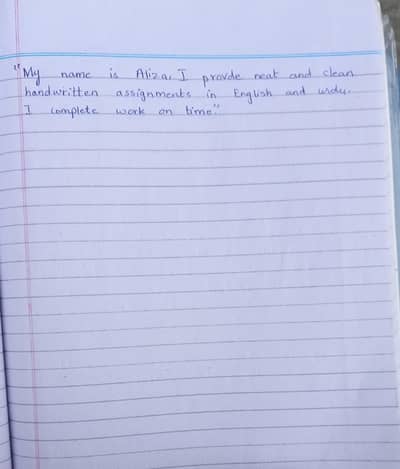 "My name is Aliza, I provde neat and clean
handwritten assignments in English and urdu.
I complete work on time."